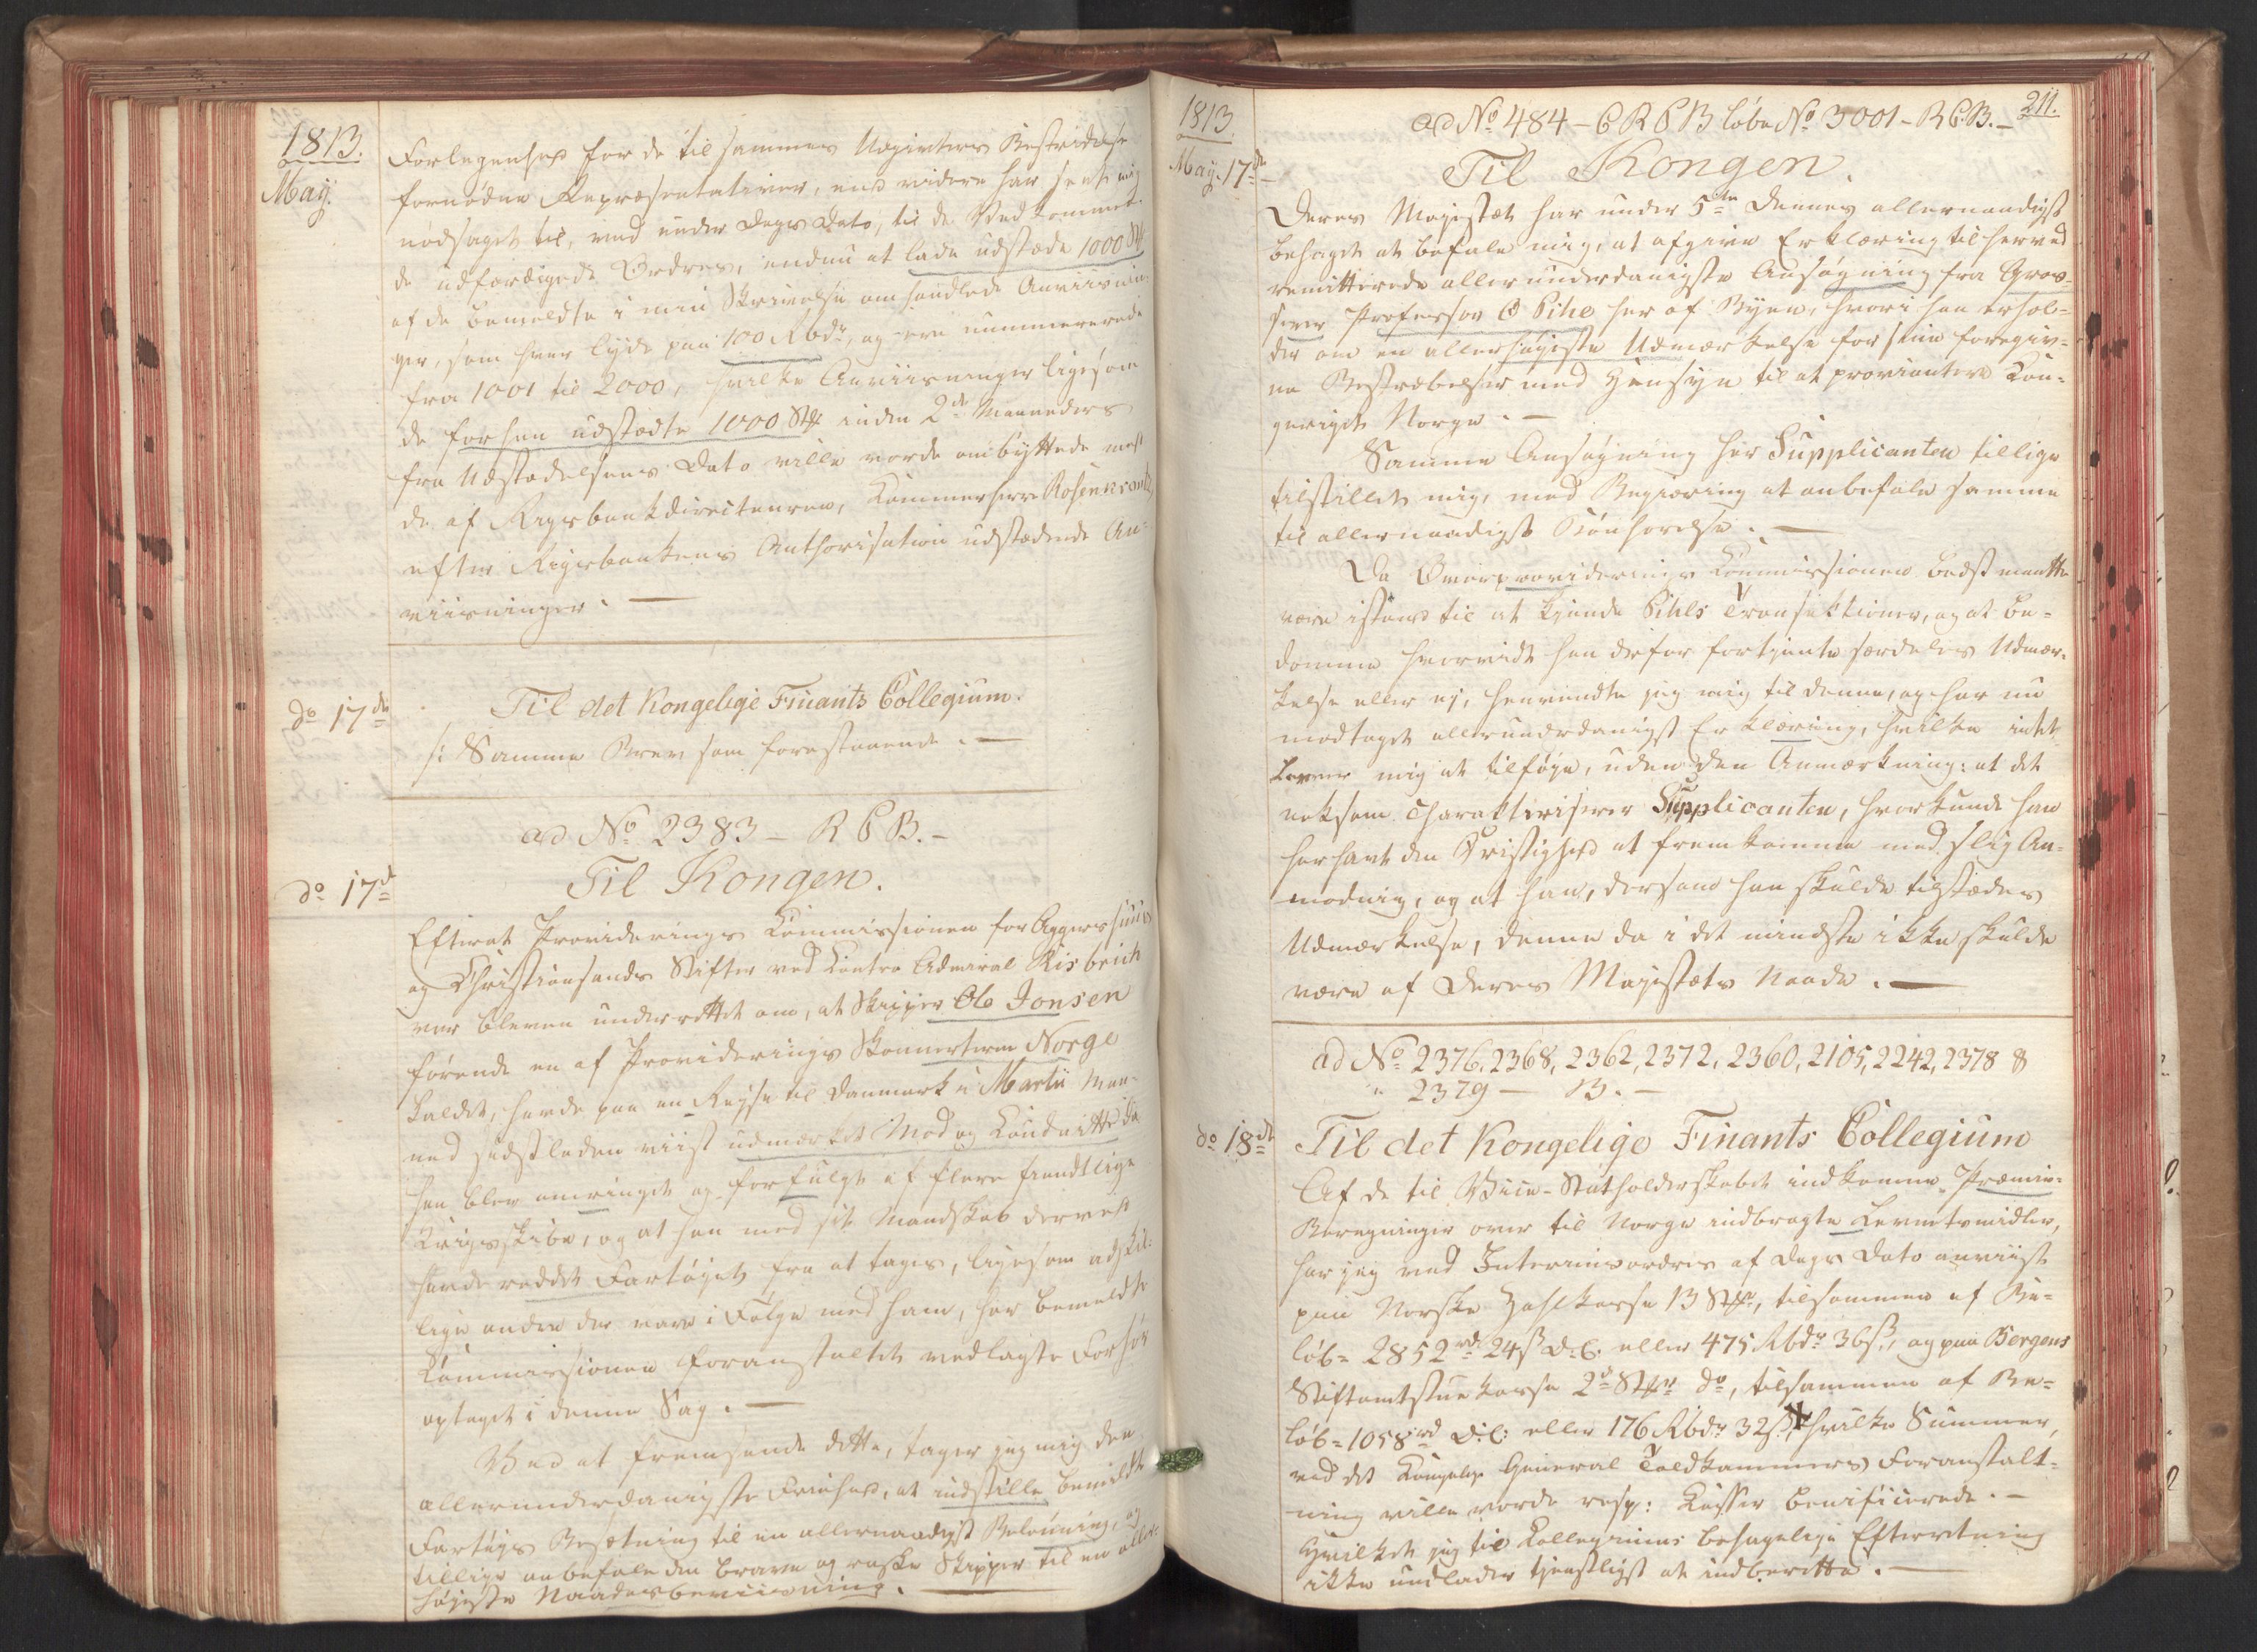 1813.
May.
Forlegenhed for de til sammes Udgivters Bestridelse
fornødne Repræsentativer, end videre har seet mig
nødsaget til, ved under Dags Dato, til de Vedkommen-
de udfærdigede Ordrer, endnu at lade udstæde 1000 Stk
af de bemeldte i min Skrivelse omhandlede Anviisnin-
ger, som hver lyde paa 100 Rbdr, og ere nummererede
fra 1001 til 2000, hvilke Anviisninger ligesom
de forhen udstædte 1000 Stk inden 2de Maaneders
fra Udstædelsens Dato ville vorde ombyttede mod
de af Rigsbankdirecteuren, Kammerherre Rosenkrantz
efter Rigsbankens Authorisation udstædende An-
viisninger. —
do 17de
Til det Kongelige Finants Collegium.
/: Samme Brev som forestaaende. —
ad No 2383 – R C B. –
do 17de
Til Kongen.
Efterat Provideringskommissionen for Aggershuus
og Christiansands Stifter ved Contra Admiral Risbrich
var bleven underrettet om, at Skipper Ole Jonsen
førende en af Providerings Skonnerterne Norge
kaldet, havde paa en Rejse til Danmark i Martii Maa-
ned sidstleden viist udmærket Mod og Conduitte da
han blev omringet og forfulgt af flere fiendtlige
Krigsskibe, og at han med sit Mandskab derved
havde reddet Fartøjet fra at tages, ligesom adskil-
lige andre der vare i Følge med ham, har bemeldte
Kommissionen foranstaltet vedlagte Forhør
optaget i denne Sag. —
Ved at fremsende dette, tager jeg mig den
allerunderdanigste Friehed, at indstille bemeldte
Fartøjs Besætning til en allernaadigst Belønning, og
tillige anbefale den brave og raske Skipper til en aller-
højeste Naadesbeviisning. —
1813.
211.
May. 17de
ad No 484 – C R C B løbe No 3001 – R C B. –
Til Kongen.
Deres Majestæt har under 5te Dennes allernaadigst
behaget at befale mig, at afgive Erklæring til herved
remitterede allerunderdanigste Ansøgning fra Gros-
serer Professor O Pihl her af Byen, hvori han erhol-
der om en allerhøjeste Udmærkelse for sine foregiv-
ne Bestræbelser med Hensyn til at proviantere Kon-
geriget Norge. —
Samme Ansøgning har Supplicanten tillige
tilstillet mig, med Begiæring at anbefale samme
til allernaadigst Bønhørelse. —
Da Overprovideringskommissionen bedst maatte
være istand til at kjende Pihls Transaktioner, og at be-
dømme hvorvidt han derfor fortjente særdeles Udmær-
kelse eller ej, henvendte jeg mig til denne, og har nu
modtaget allerunderdanigst Erklæring, hvilke intet
levner mig at tilføje, uden den Anmærkning: at det
noksom Charakteriserer Supplicanten, hvorlunde han
har havt den Dristighed at fremkomme med slig An-
modning, og at han, dersom han skulde tilstædes
Udmærkelse, denne da i det mindste ikke skulde
være af Deres Majestæts Naade. —
ad No 2376, 2368, 2362, 2372, 2360, 2105, 2242, 2378 &
" 2379 — B. —
do 18de
Til det Kongelige Finants Collegium
Af de til Vice-Statholderskabet indkomne Præmie-
Beregninger over til Norge indbragte Levnetsmidler,
har jeg ved Interimsordres af Dags Dato anviist
paa Norske Zahlkasse 13 Stkr, tilsammen af Be-
løb = 2852 rd 24 ß D.C. eller 475 Rbdr 36 ß, og paa Bergens
Stiftamtstuekasse 2de Stkr do, tilsammen af Be-
løb = 1058 rd D.C. eller 176 Rbdr 32 ß, hvilke Summer,
ved det Kongelige General Toldkammers Foranstalt-
ning ville vorde resp: Kasser benificerede. —
Hvilket jeg til Collegiums behagelige Efterretning
ikke undlader tjenstligst at indberette. —